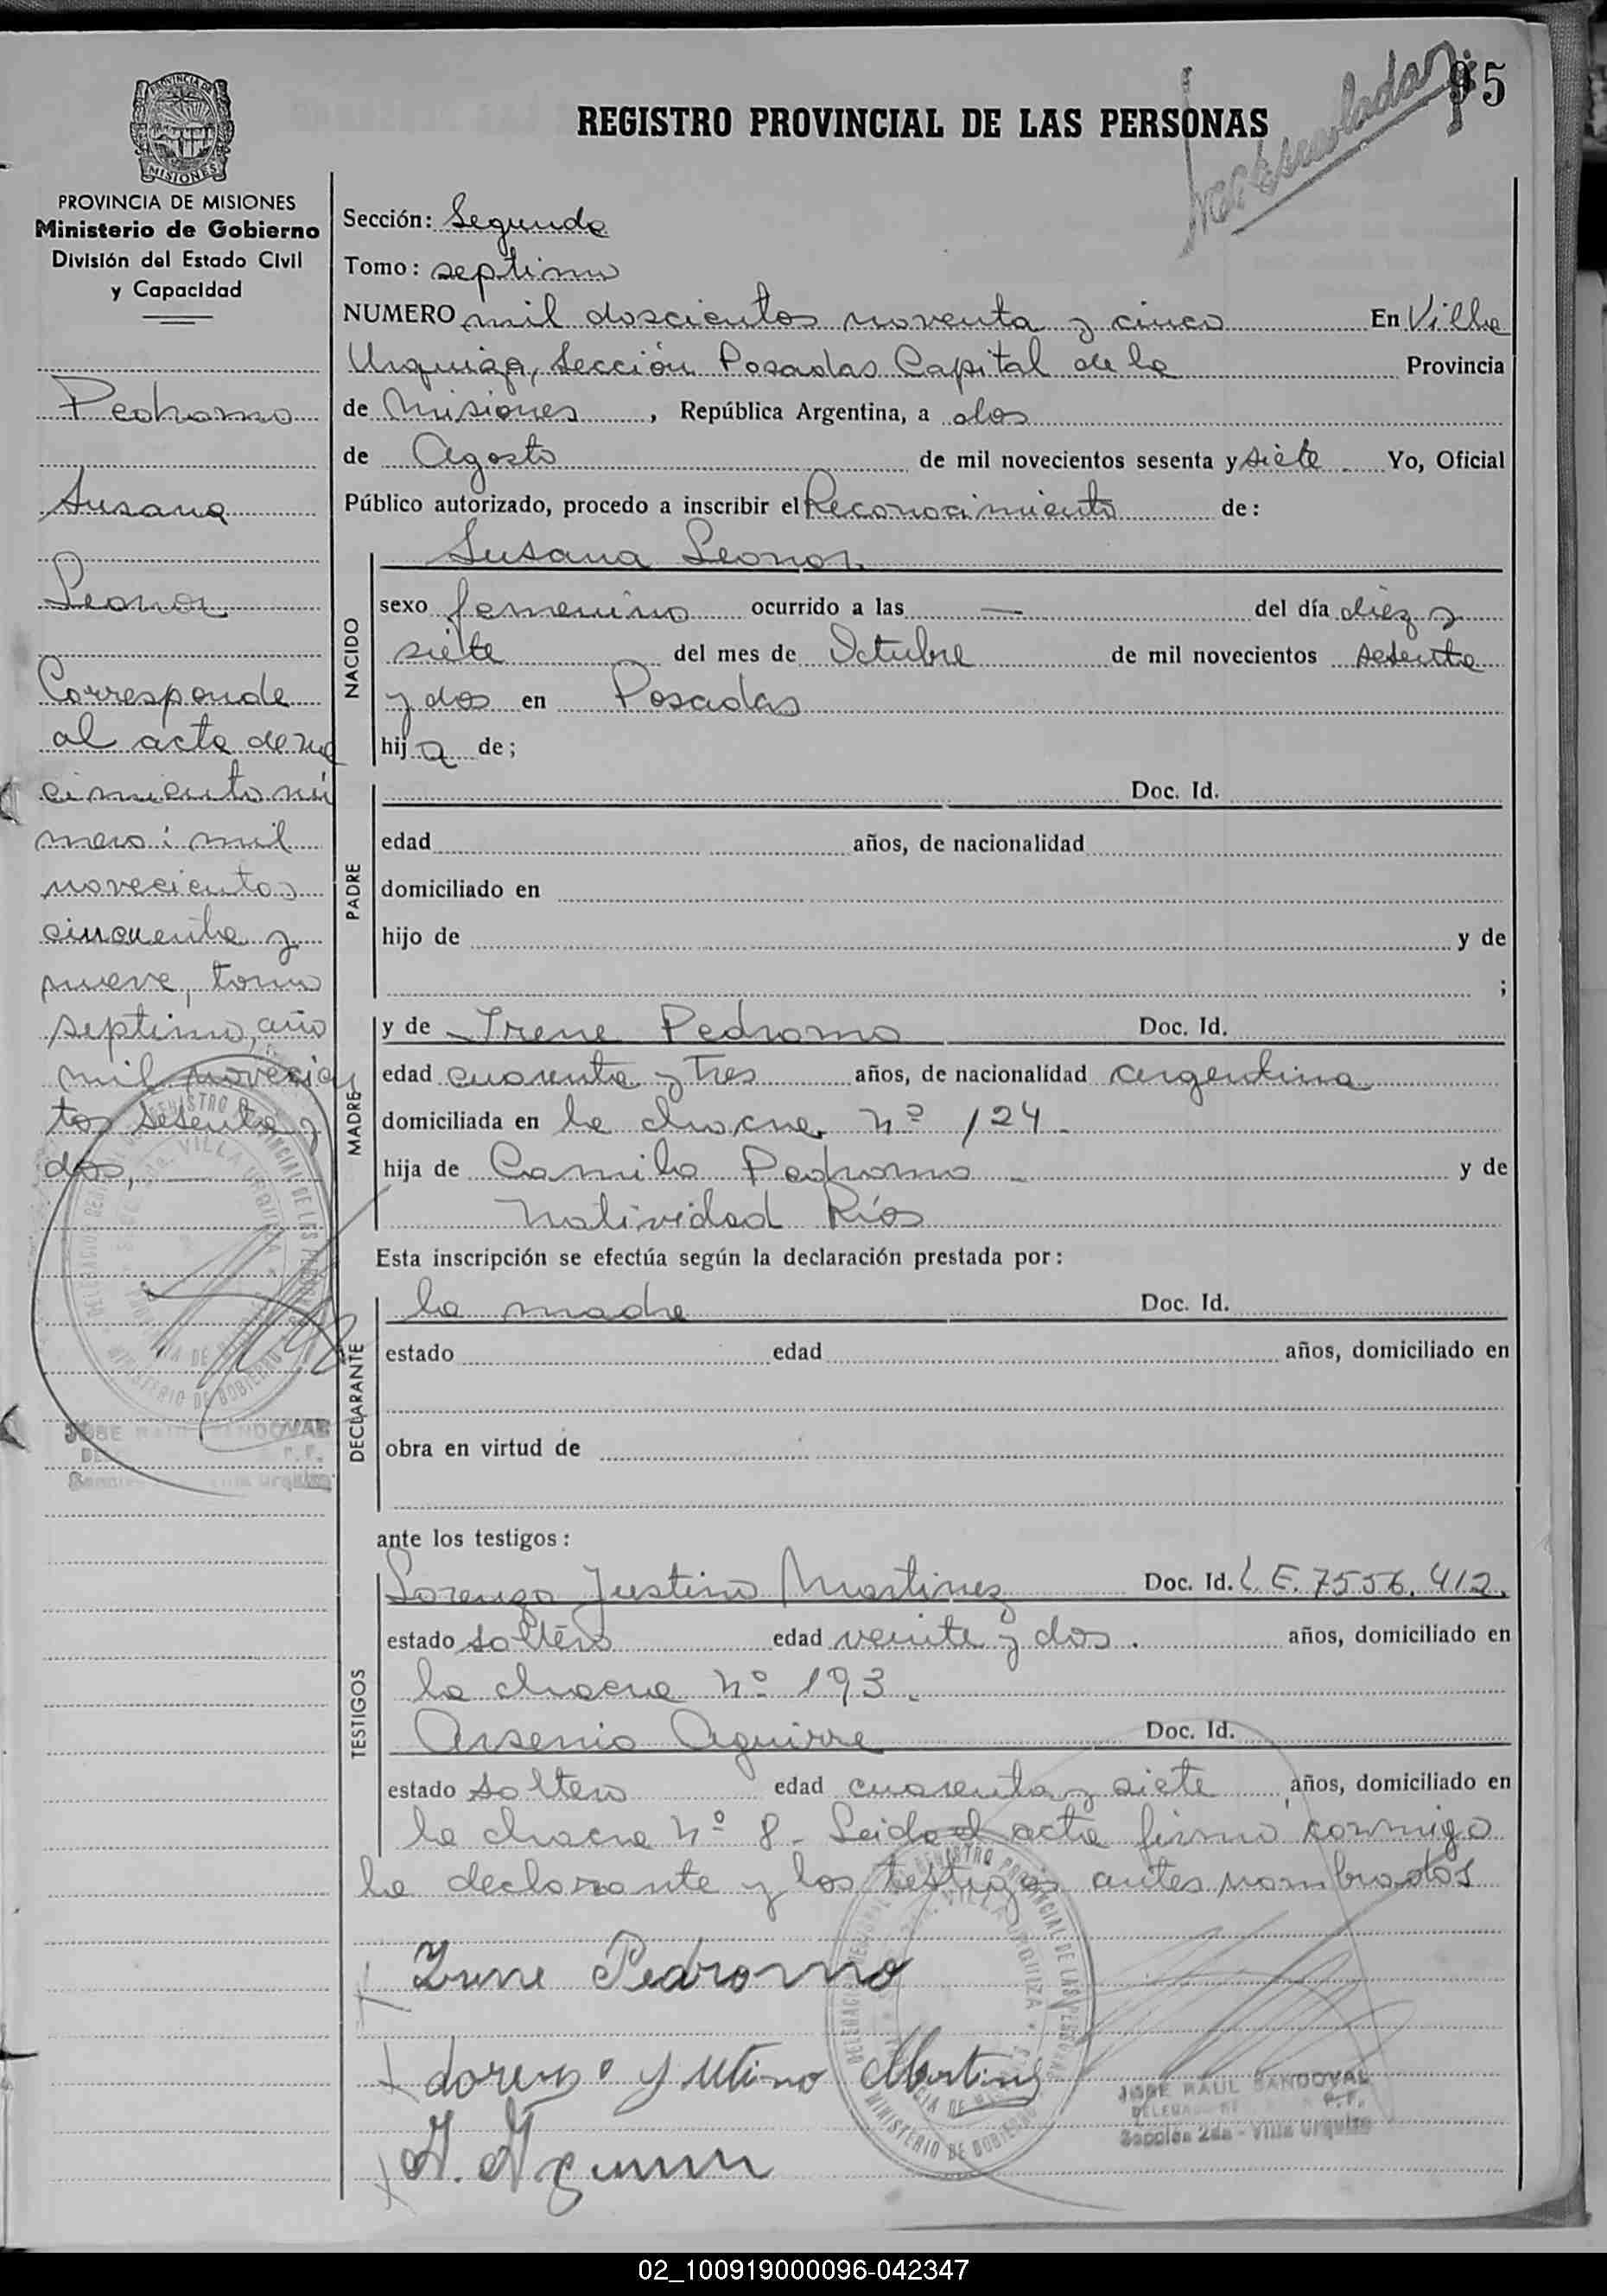 95
REGISTRO PROVINCIAL DE LAS PERSONAS
PROVINCIA DE
MISIONES
PROVINCIA DE MISIONES
Ministerio de Gobierno
División del Estado Civil
y Capacidad
Pedromo
Susana
Leonor
Corresponde
al acta de na
cimiento nú
mero: mil
novecientos
cincuenta y
nueve, tomo
septimo, año
mil novecien
tos sesenta y
dos,
JOSE RAUL SANDOVAL
Villa Urquiza
Sección: Segunda
Tomo: septimo
NUMERO mil doscientos noventa y cinco En Villa
Urquiza, Sección Posadas Capital de la Provincia
de Misiones, República Argentina, a dos
de Agosto de mil novecientos sesenta y siete. Yo, Oficial
Público autorizado, procedo a inscribir el Reconocimiento de:
Susana Leonor
NACIDO
sexo femenino ocurrido a las — del día diez y
siete del mes de Octubre de mil novecientos sesenta
y dos en Posadas
hija de;
PADRE
Doc. Id.
edad años, de nacionalidad
domiciliado en
hijo de y de
;
MADRE
y de Irene Pedromo Doc. Id.
edad cuarenta y tres años, de nacionalidad argentina
domiciliada en la chacra Nº 124.
hija de Camilo Pedromo y de
Natividad Ríos
Esta inscripción se efectúa según la declaración prestada por:
DECLARANTE
la madre Doc. Id.
estado edad años, domiciliado en
obra en virtud de
ante los testigos:
TESTIGOS
Lorenzo Justino Martinez Doc. Id. L.E. 7556.412.
estado soltero edad veinte y dos. años, domiciliado en
la chacra Nº 193.
Arsenio Aguirre Doc. Id.
estado soltero edad cuarenta y siete años, domiciliado en
la chacra Nº 8. Leida el acta firmó conmigo
la declarante y los testigos antes nombrados
Irene Pedromo
Lorenzo Justino Martinez
A. Aguirre
REGISTRO PROVINCIAL DE LAS PERSONAS
VILLA URQUIZA
MINISTERIO DE GOBIERNO
JOSE RAUL SANDOVAL
Sección 2da - Villa Urquiza
02_100919000096-042347